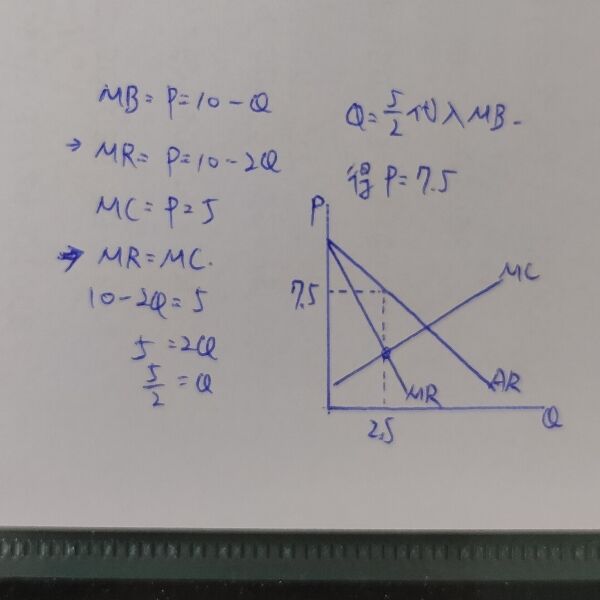 MB = P = 10 - Q
→ MR = P = 10 - 2Q
MC = P = 5
⇒ MR = MC.
10 - 2Q = 5
5 = 2Q
5/2 = Q
Q = 5/2 代入 MB.
得 P = 7.5
P
MC
7.5
MR
AR
Q
2.5